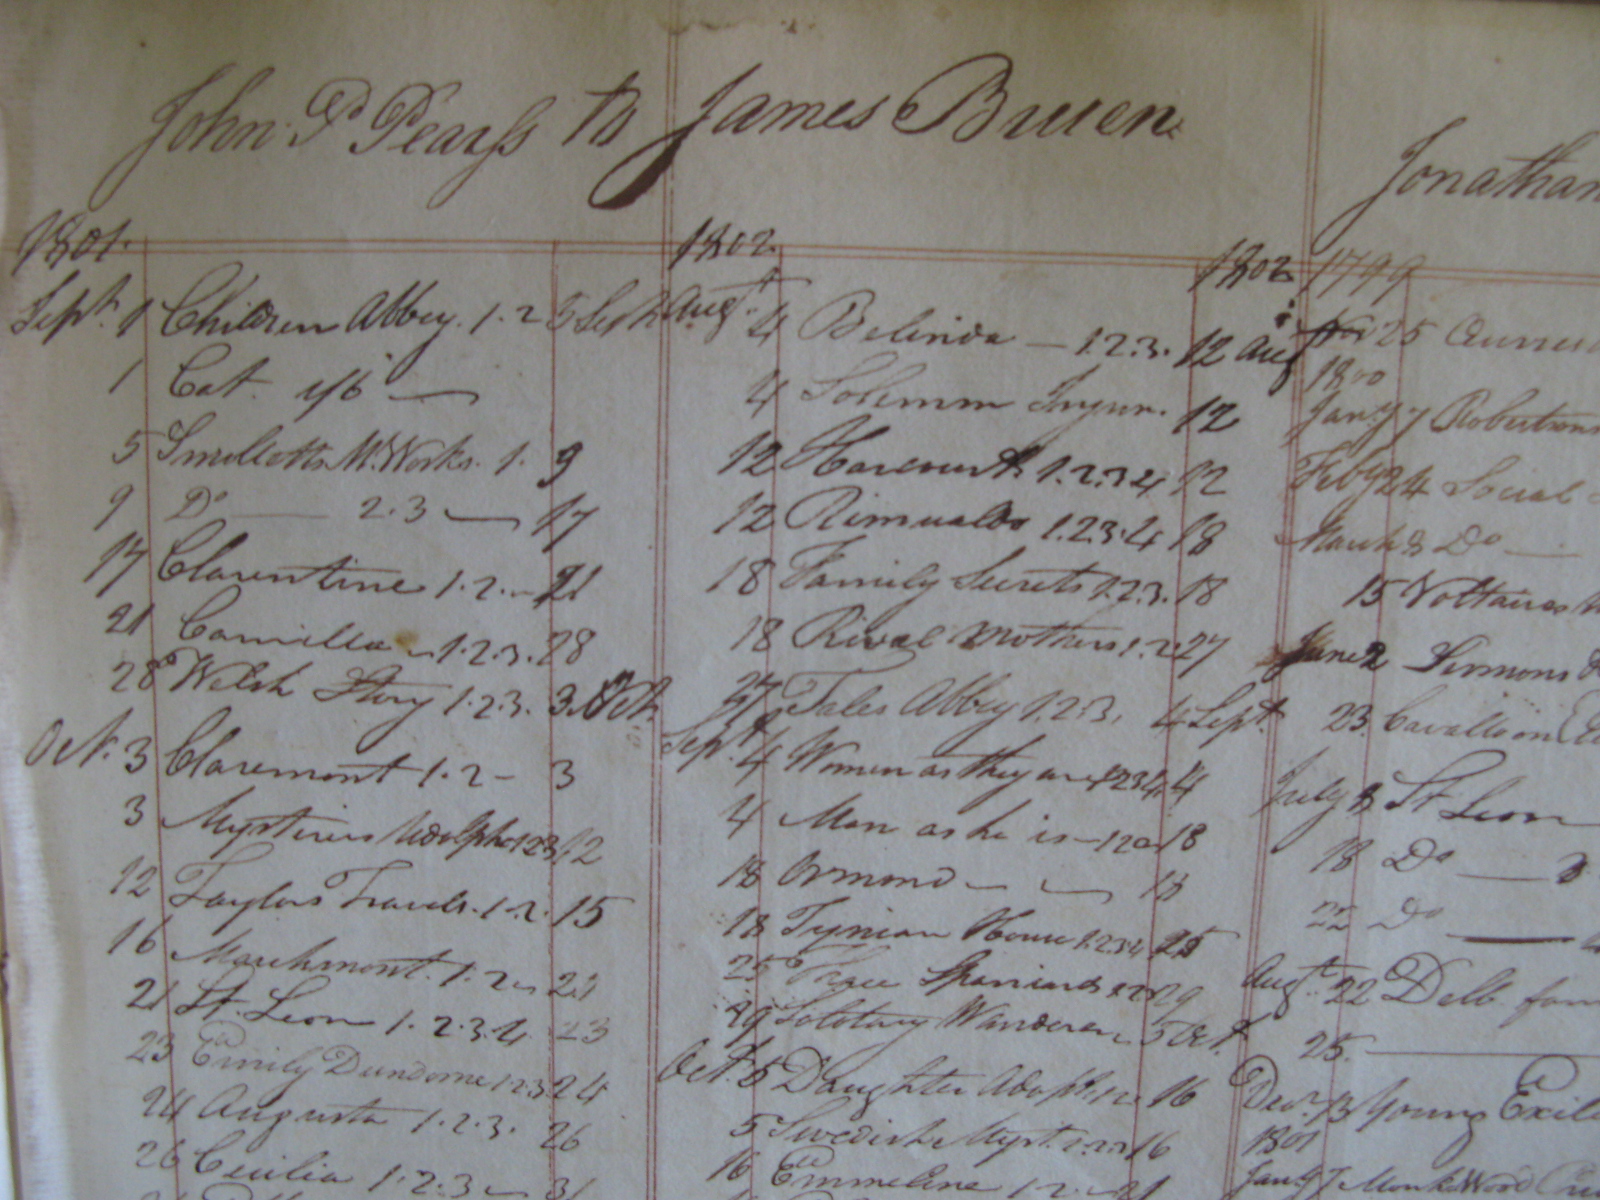 John P Pearss to James Bruen
Jonathan
1801.
Sept. 1 Children Abbey. 1. 2 5 Sept
1 Cat. 1/6 —
5 Smolletts M. Works. 1. 9
9 Do — 2. 3 — 17
17 Clarentine 1. 2. — 21
21 Camilla — 1. 2. 3. 28
28 Welsh Story 1. 2. 3. 3. Oct.
Oct. 3 Claremont 1. 2 — 3
3 Mysteries Udolpho 1 2 3 12
12 Taylors Travels. 1. 2. 15
16 Marchmont. 1. 2 21
21 St. Leon 1. 2. 3. 4. 23
23 Emily Dundorne 1 2 3 24
24 Augusta 1. 2. 3. 26
26 Cecilia 1. 2. 3 — 31
1802.
1802
Augt. 4 Belinda — 1. 2. 3. 12 Aug
4 Solemn Injun. 12
12 Harcourt 1. 2. 3 4 12
12 Rimualdo 1. 2. 3. 4 18
18 Family Secrets 1. 2. 3. 18
18 Rival Mothers 1. 2. 27
27 Tales Abbey 1. 2. 3. 4 Sept.
Sept. 4 Women as they are 1 2 3 4. 4
4 Man as he is — 1 2 18
18 Ormond — — 18
18 Tynian House 1. 2 3 4 25
25 Spaniards 29
29 Solotary Wanderer 5 Oct.
Oct. 5 Daughter Adopt. 1 2 16
5 Swedish Myst. 1. 2. 3 16
16 Emmeline 1. 2. — 21
1799
25
1800
Jany. 7 Robertsons
Feby 24 Social
March 3 Do —
15 Voltaires
June 2 Sermons
23. Cavallo on
July 3 St Leon
18 Do —
22 Do —
Augt. 22 Dell. fam
25. —
Decr. 13 Young Exile
1801
Jany. 7 Monk Wood